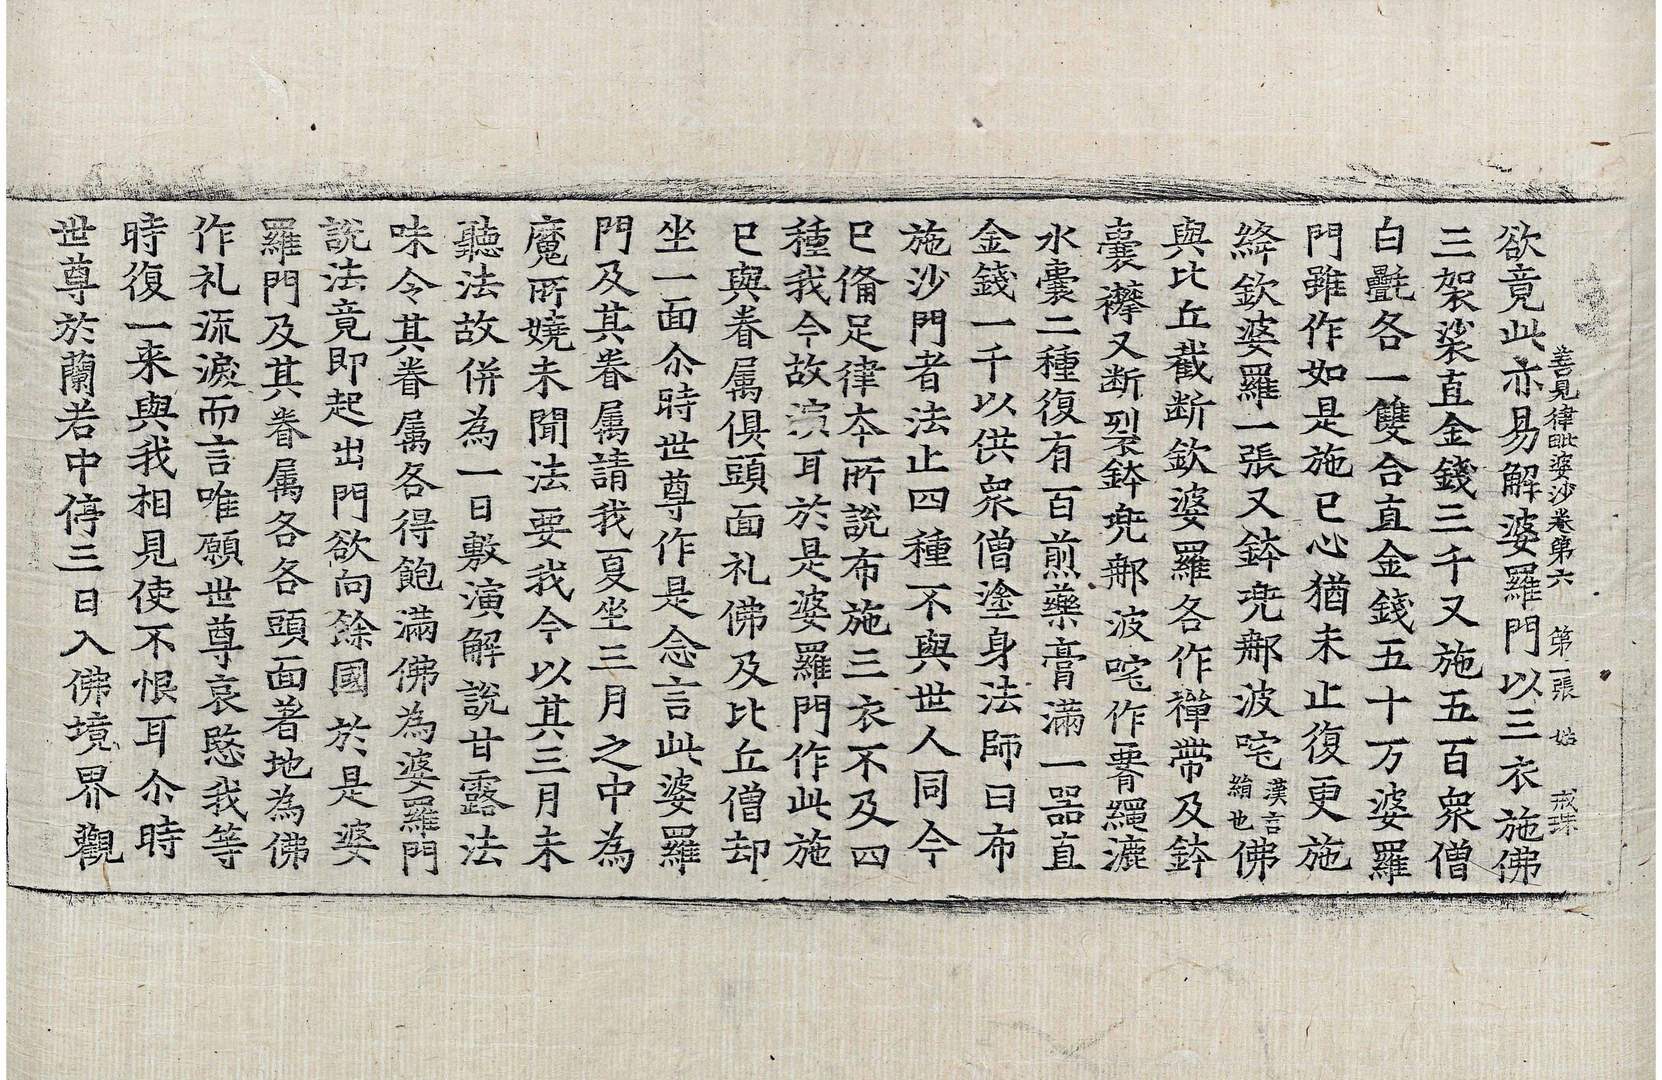 善見律毗婆沙卷第六　第二張　姑　戒珠
欲竟此亦易解婆羅門以三衣施佛
三袈裟直金錢三千又施五百衆僧
白㲲各一雙合直金錢五十万婆羅
門雖作如是施已心猶未止復更施
絳欽婆羅一張又鉢兠郍波咤漢言絹也佛
與比丘截断欽婆羅各作禪帶及鉢
囊襻又断裂鉢兠郍波咤作䙅繩漉
水囊二種復有百煎藥膏滿一器直
金錢一千以供衆僧塗身法師曰布
施沙門者法止四種不與世人同今
已俻足律夲所說布施三衣不及四
種我今故演耳於是婆羅門作此施
已與眷属俱頭面礼佛及比丘僧却
坐一面尒時世尊作是念言此婆羅
門及其眷属請我夏坐三月之中為
魔所嬈未聞法要我今以其三月未
聽法故併為一日敷演解說甘露法
味令其眷属各得飽滿佛為婆羅門
說法竟即起出門欲向餘國於是婆
羅門及其眷属各各頭面著地為佛
作礼流淚而言唯願世尊哀愍我等
時復一来與我相見使不恨耳尒時
世尊於蘭若中停三日入佛境界觀